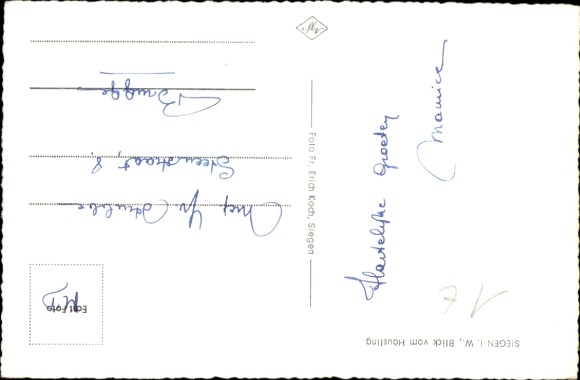 SIEGEN i. W., Blick vom Häusling
Hartelijke groeten
Maurice
Foto Fr. Erich Koch, Siegen
Echt Foto
Mej Yv
Steenstraat, 8.
Brugge
17